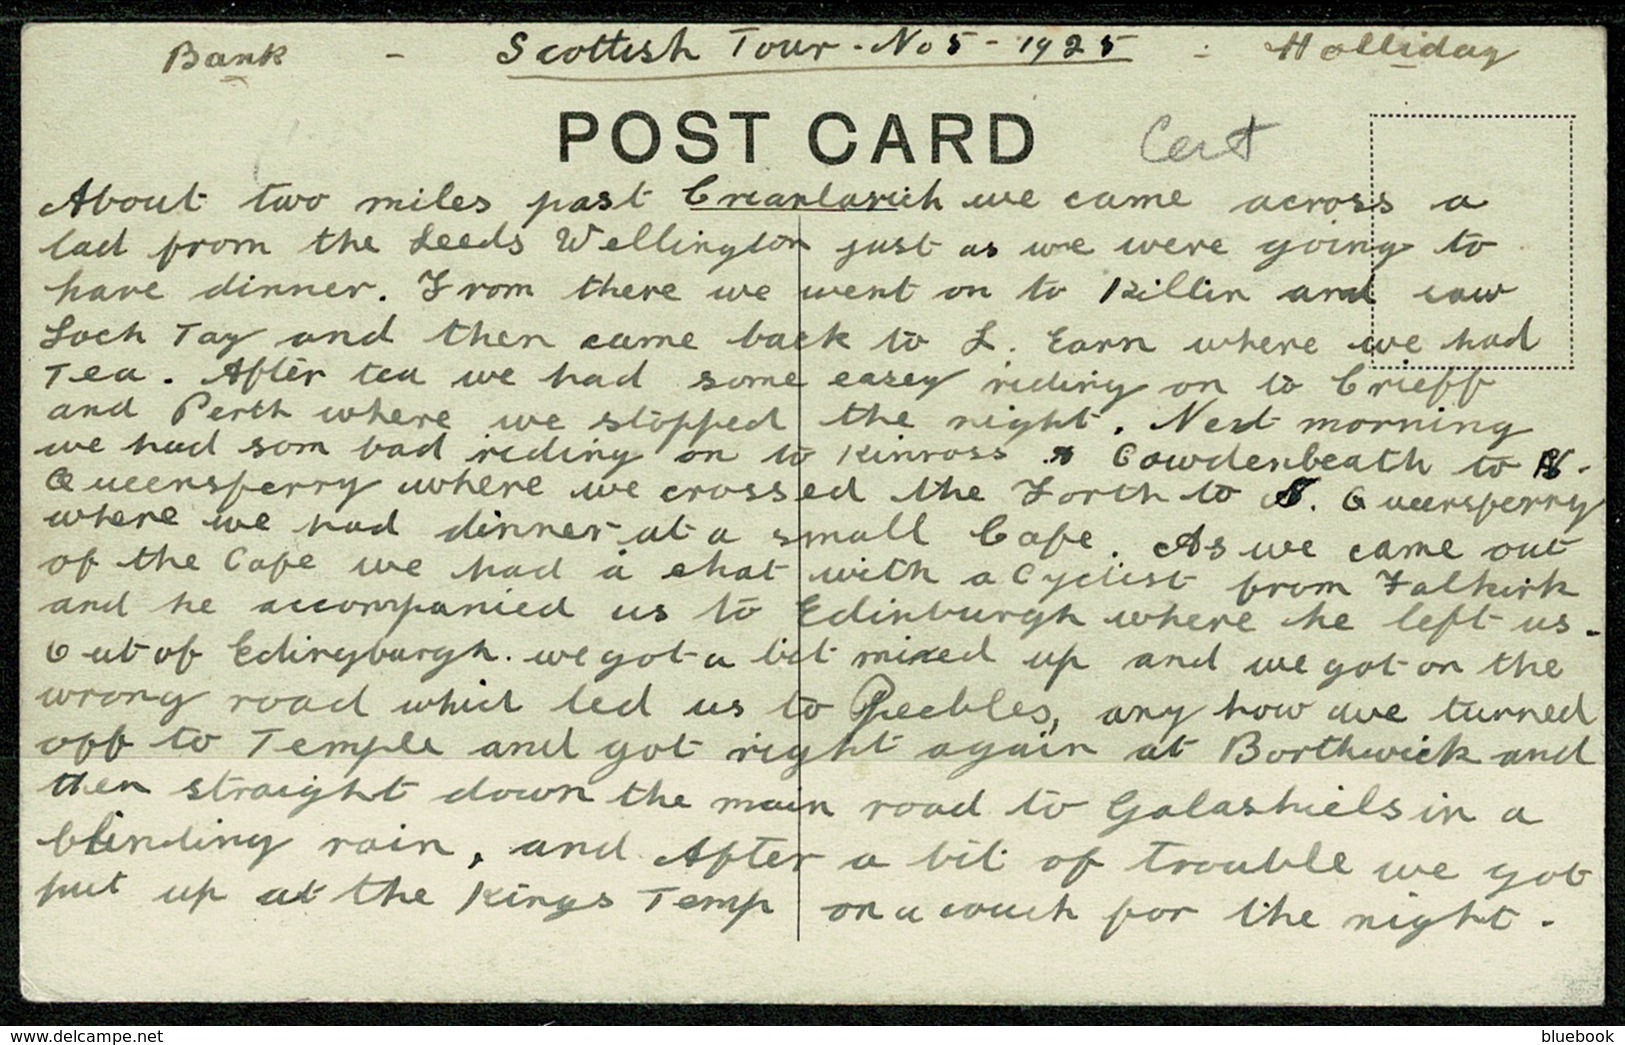 Bank - Scottish Tour - No 5 - 1925 : Holliday
POST CARD
Cert
About two miles past Crearlarich we came across a
lad from the Leeds Wellington just as we were going to
have dinner. From there we went on to Killin and saw
Loch Tay and then came back to L. Earn where we had
Tea. After tea we had some easey riding on to Crieff
and Perth where we stopped the night. Next morning
we had som bad riding on to Kinross Cowdenbeath to N.
Queensferry where we crossed the Forth to S. Queensferry
where we had dinner at a small Cafe. As we came out
of the Cafe we had a chat with a Cyclist from Falkirk
and he accompanied us to Edinburgh where he left us.
Out of Edingburgh. we got a bit mixed up and we got on the
wrong road which led us to Peebles, any how we turned
off to Temple and got right again at Borthwick and
then straight down the main road to Galashiels in a
blinding rain, and After a bit of trouble we got
put up at the Kings Temp on a couch for the night.
www.delcampe.net
bluebook